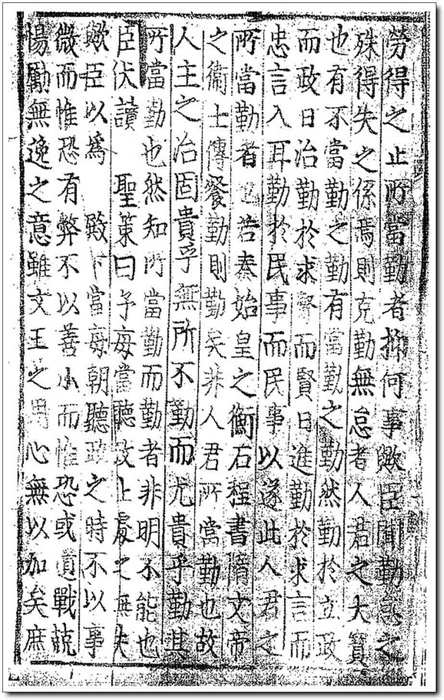 勞得之止所當勤者抑何事歟臣聞勤怠之
殊得失之係焉則克勤無怠者人君之大寶
也有不當勤之勤有當勤之勤然勤於立政
而政日治勤於求賢而賢日進勤於求言而
忠言入耳勤於民事而民事以遂此人君之
所當勤者也若秦始皇之衡石程書隋文帝
之衛士傳餐勤則勤矣非人君所當勤也故
人主之治固貴乎無所不勤而尤貴乎勤其
所當勤也然知所當勤而勤者非明不能也
臣伏讀 聖策曰予每當聽政上處之無失
歟臣以爲 下當每朝聽政之時不以事
微而惟恐有弊不以善小而惟恐或遺戰兢
惕勵無逸之意雖文王之用心無以加矣庶